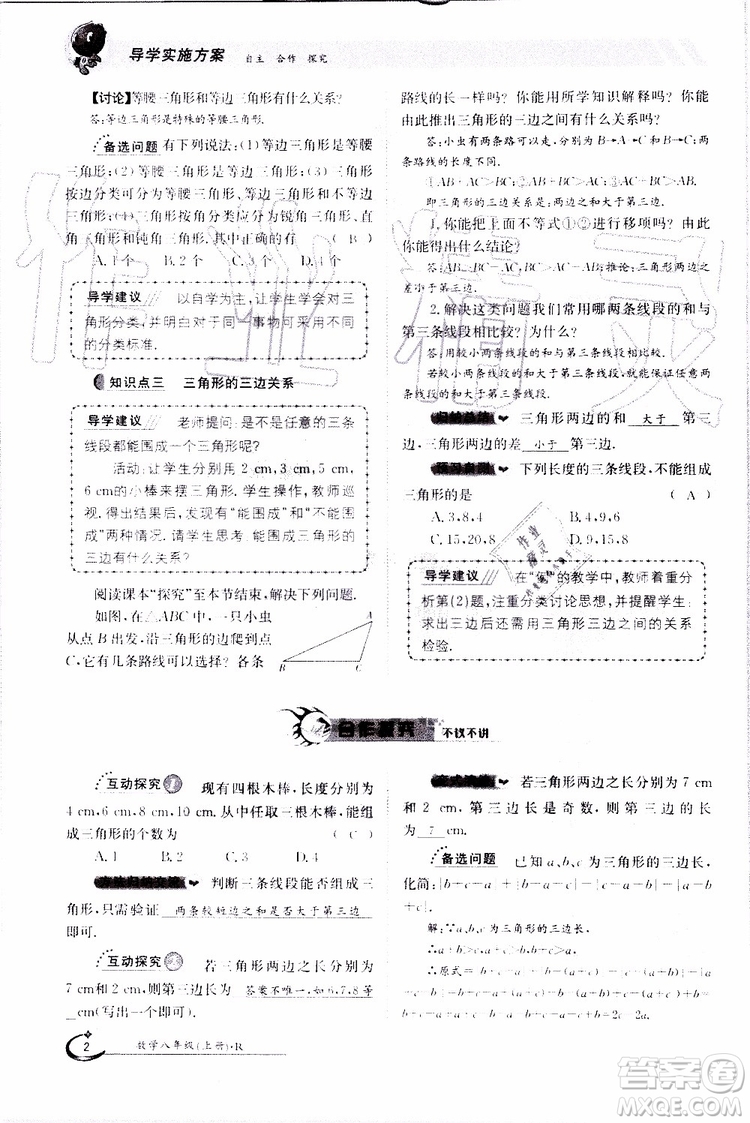 导学实施方案 自主 合作 探究
【讨论】等腰三角形和等边三角形有什么关系?
答:等边三角形是特殊的等腰三角形.
备选问题 有下列说法:(1)等边三角形是等腰
三角形;(2)等腰三角形是等边三角形;(3)三角形
按边分类可分为等腰三角形、等边三角形和三边都不相等的三角形;
形;(4)三角形按角分类应分为锐角三角形、直
角三角形和钝角三角形.其中正确的有 ( B )
A.1个 B.2个 C.3个 D.4个
导学建议 以自学为主,让学生学会对三
角形分类,并明白对于同一事物可采用不同
的分类标准.
知识点三 三角形的三边关系
导学建议 老师提问:是不是任意的三条
线段都能围成一个三角形呢?
活动:让学生分别用 2 cm,3 cm,5 cm,
6 cm的小棒来摆三角形.学生操作,教师巡
视.得出结果后,发现有“能围成”和“不能围
成”两种情况.请同学生思考,能围成三角形的
三边应有什么关系?
阅读课本“探究”至本节结束,解决下列问题.
如图,在△ABC中,有一只小虫
从点B出发,沿三角形的边爬到点
C,它有几条路线可以选择?各条
A
B
C
路线的长一样吗?你能用所学知识解释吗?由
此推出三角形的三边之间有什么关系?
答:小虫有两条路可以走,分别为B→A→C和B→C.两
条路线的长度不同.
①AB+AC>BC;②AB+BC>AC;③AC+BC>AB.
即三角形的三边关系是:两边的和大于第三边.
1.你能把上面不等式①②进行移项吗?由此
你能得出什么结论?
答:AB>BC-AC,BC>AC-AB;推论:三角形两边的
差小于第三边.
2.解决这类问题我们常用哪两条线段的和与
第三条线段相比较?为什么?
答:用较小两条线段的和与第三条线段比较.
若较小两条线段的和大于第三条线段,就能保证任意两
条线段的和大于第三条线段.
归纳总结 三角形两边的和 大于 第三
边,三角形两边的差 小于 第三边.
预习自测 下列长度的三条线段,不能组成
三角形的是 ( A )
A.3,8,4 B.4,9,6
C.15,20,8 D.9,15,8
导学建议 在“例”的教学中,教师着重分
析第(2)题,注重分类讨论思想,并提醒学生:
求出三边后还需用三角形三边之间的关系
检验.
合作探究 不议不讲
互动探究1 现有四根木棒,长度分别为
4 cm,6 cm,8 cm,10 cm.从中任取三根木棒,能组
成三角形的个数为 ( C )
A.1 B.2 C.3 D.4
方法归纳交流 判断三条线段能否组成三
角形,只需验证 两条较短边之和是否大于第三边
即可.
互动探究2 若三角形两边之长分别为7 cm
和2 cm,则第三边长可以为 答案不唯一,如6,7,8等
cm(写出一个即可).
变式演练 若三角形两边之长分别为7 cm
和2 cm,第三边长是奇数,则第三边的长
为 7 cm.
备选问题 已知a,b,c为三角形的三边长,
化简:|b+c-a|+|b-c-a|-|c-a-b|-|a-b
+c|.
解:∵a,b,c为三角形的三边长,
∴原式=
2 数学八年级(上册)·R
作业精灵
答案圈
MXQE.COM